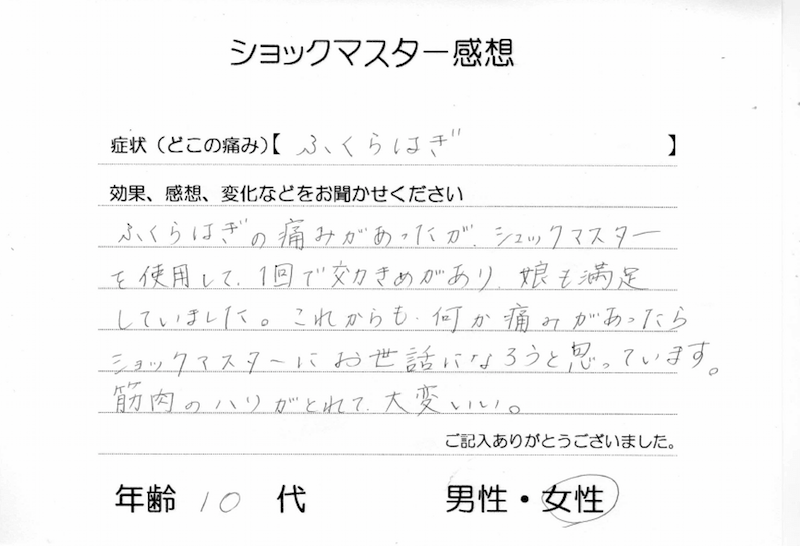 ショックマスター感想
症状（どこの痛み）【 ふくらはぎ 】
効果、感想、変化などをお聞かせください
ふくらはぎの痛みがあったが、ショックマスター
を使用して、1回で効きめがあり、娘も満足
していました。これからも、何か痛みがあったら
ショックマスターにお世話になろうと思っています。
筋肉のハリがとれて、大変いい。
ご記入ありがとうございました。
年齢 10 代 男性・女性